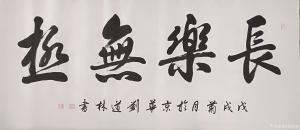 長樂無極
戊戌菊月於京華劉道林書